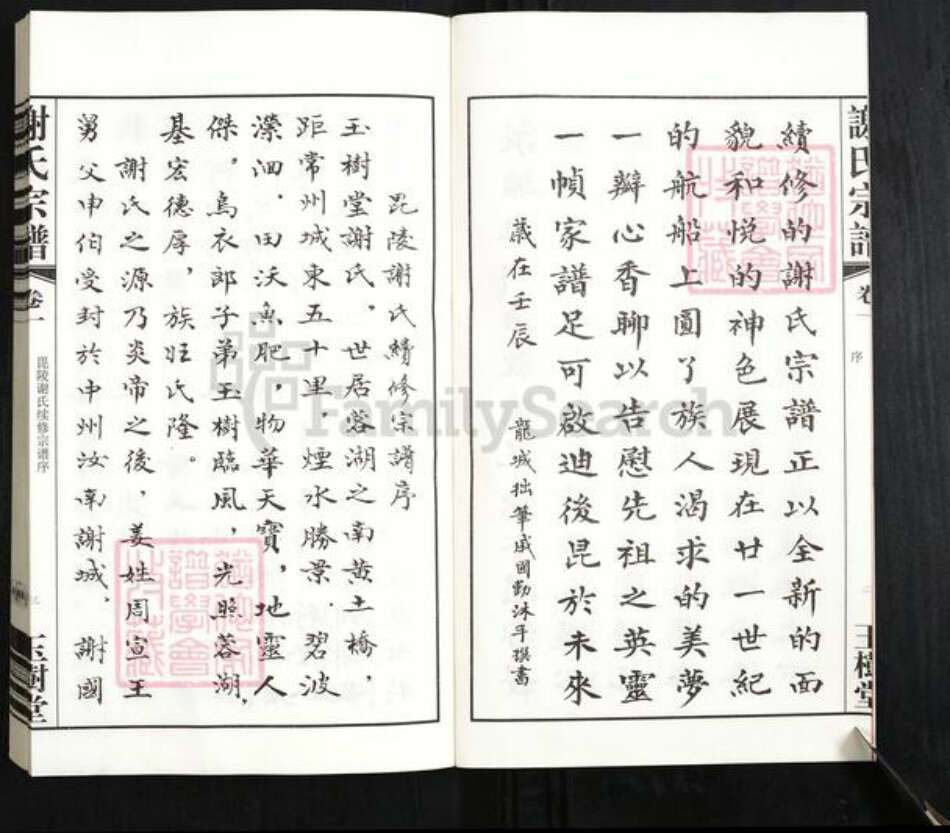 謝氏宗譜
卷一
序
玉樹堂
續修的謝氏宗譜正以全新的面
貌和悅的神色展現在廿一世紀
的航船上圓了族人渴求的美夢
一瓣心香聊以告慰先祖之英靈
一幀家譜足可啟迪後昆於未來
歲在壬辰
龍城拙筆戚國勤沐手撰書
毘陵謝氏續修宗譜序
玉樹堂謝氏，世居蓉湖之南黃土橋，
距常州城東五十里．煙水勝景．碧波
瀠洄．田沃魚肥，物華天寶，地靈人
傑。烏衣郎子弟玉樹臨風，光照蓉湖，
基宏德厚，族旺氏隆。
謝氏之源乃炎帝之後，姜姓周宣王
舅父申伯受封於中州汝南謝城，謝國
謝氏宗譜
卷一
毘陵谢氏续修宗谱序
玉樹堂
FamilySearch